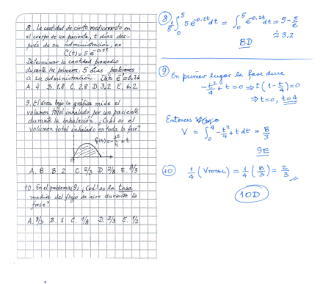 8. La cantidad de cierto medicamento en
el cuerpo de un paciente, t días des-
pués de su administración, es
C(t) = 5e^-0.2t
Determinar la cantidad promedio
durante los primeros 5 días posteriores
a la administración.
A. 4 B. 1,8 C. 2,8 D. 3,2 E. 4,2
9. El área bajo la gráfica mide el
volumen total inhalado por un paciente
durante la inhalación. ¿Cuál es el
volumen total inhalado en toda la fase?
f(t) = -t²/4 + t
A. 8 B. 2 C. 2/3 D. 3/8 E. 8/3
10. En el problema 9, ¿Cuál es la tasa
media del flujo de aire durante la
fase?
A. 8/3 B. 1 C. 1/3 D. 2/3 E. 1/2
8) 1/5 ∫₀⁵ 5e^-0.2t dt = ∫₀⁵ e^-0.2t dt = 5 - 5/e
≈ 3.2
8D
9) En primer lugar la fase dura
-t²/4 + t = 0 → t(1 - t/4) = 0
→ t=0, t=4
Entonces
V = ∫₀⁴ -t²/4 + t dt = 8/3
9E
10) 1/4 (V TOTAL) = 1/4 (8/3) = 2/3
10D